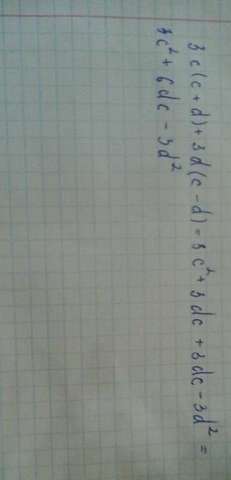 3c(c+d)+3d(c-d)=3c²+3dc+3dc-3d²=
3c²+6dc-3d²